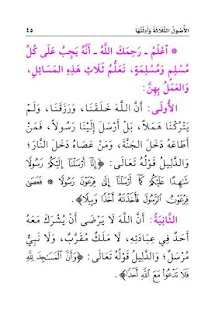 الأُصُولُ الثَّلَاثَةُ وَأَدِلَّتُهَا
٤٥
* اعْلَمْ - رَحِمَكَ اللَّهُ - أَنَّهُ يَجِبُ عَلَى كُلِّ
مُسْلِمٍ وَمُسْلِمَةٍ، تَعَلُّمُ ثَلَاثِ هَذِهِ المَسَائِلِ،
وَالعَمَلُ بِهِنَّ:
الأُولَى: أَنَّ اللَّهَ خَلَقَنَا، وَرَزَقَنَا، وَلَمْ
يَتْرُكْنَا هَمَلاً، بَلْ أَرْسَلَ إِلَيْنَا رَسُولاً، فَمَنْ
أَطَاعَهُ دَخَلَ الجَنَّةَ، وَمَنْ عَصَاهُ دَخَلَ النَّارَ؛
وَالدَّلِيلُ قَوْلُهُ تَعَالَى: ﴿إِنَّآ أَرْسَلْنَآ إِلَيْكُمْ رَسُولًا
شَٰهِدًا عَلَيْكُمْ كَمَآ أَرْسَلْنَآ إِلَىٰ فِرْعَوْنَ رَسُولًا * فَعَصَىٰ
فِرْعَوْنُ ٱلرَّسُولَ فَأَخَذْنَٰهُ أَخْذًا وَبِيلًا﴾.
الثَّانِيَةُ: أَنَّ اللَّهَ لَا يَرْضَى أَنْ يُشْرَكَ مَعَهُ
أَحَدٌ فِي عِبَادَتِهِ، لَا مَلَكٌ مُقَرَّبٌ، وَلَا نَبِيٌّ
مُرْسَلٌ؛ وَالدَّلِيلُ قَوْلُهُ تَعَالَى: ﴿وَأَنَّ ٱلْمَسَٰجِدَ لِلَّهِ
فَلَا تَدْعُوا۟ مَعَ ٱللَّهِ أَحَدًا﴾.